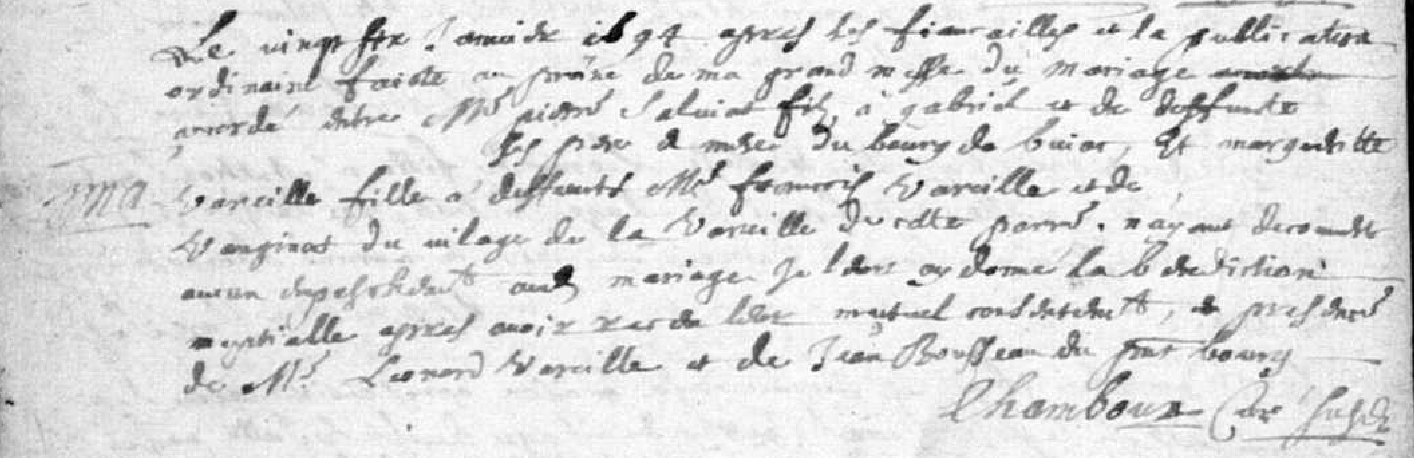 Le vingt six Janvier 1694 apres les fiancailles et la publication
ordinaire faicte au prône de ma grand messe du mariage
accordé entre Mre pierre Salviat filz a gabriel et de deffuncte
ses pere et mere du bourg de buiac, Et margueritte
MA Vareille fille a deffunts Mre francois Vareille et de
Vauginot du vilage de la Vareille de cette parre. n'ayant decouvert
aucun empeschement aud mariage Je leur ay donné la benediction
nuptialle apres avoir receu leur mutuel consentement, en presence
de Mre Leonard Vareille et de Jean Bousseau du pnt bourg
Chamboux Curé susd